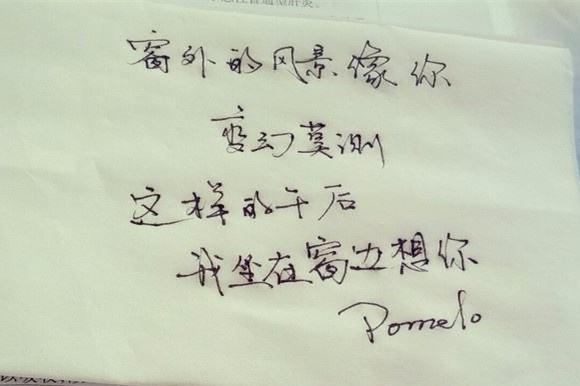 窗外的风景像你
变幻莫测
这样的午后
我坐在窗边想你
Pomelo